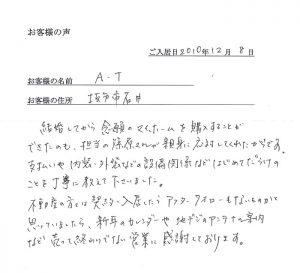 お客様の声
ご入居日2010年12月8日
お客様の名前 A・T
お客様の住所 坂戸市石井
結婚してから念願のマイホームを購入することが
できたのも、担当の篠原さんが親身に応対してくれたからです。
支払いや内装・外装などの設備関係などはじめてだらけの
ことを丁寧に教えて下さいました。
不動産の方とは契約・入居したらアフターフォローもないものかと
思っていましたら、新年のカレンダーや地デジのアンテナの案内
など売って終わりでない営業に感謝しております。